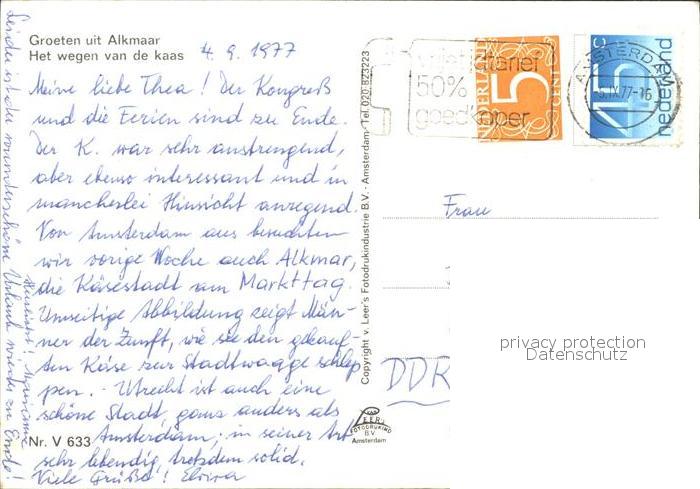 Groeten uit Alkmaar
Het wegen van de kaas
4.9.1977
Meine liebe Thea! Der Kongreß
und die Ferien sind zu Ende.
Der K. war sehr anstrengend,
aber ebenso interessant und in
mancherlei Hinsicht anregend.
Von Amsterdam aus besuchten
wir vorige Woche auch Alkmar,
die Käsestadt am Markttag.
Umseitige Abbildung zeigt Män-
ner der Zunft, wie sie den gekauf-
ten Käse zur Stadtwaage schlep
pen. - Utrecht ist auch eine
schöne Stadt, ganz anders als
Amsterdam; in seiner Art
sehr lebendig, trotzdem solid.
Viele Grüße! Elvira
Nr. V 633
Leider ist der wunderschöne Urlaub wieder zu Ende!
Herzlichst!
Copyright v. Leer's Fotodrukindustrie B.V. - Amsterdam - Tel. 020-823223
LEER'S
FOTODRUKIND
B.V.
Amsterdam
50%
goedkoper
NEDERLAND
5
CENT
AMSTERDAM
5.IX.77-16
45
c
nederland
Frau
DDR
privacy protection
Datenschutz